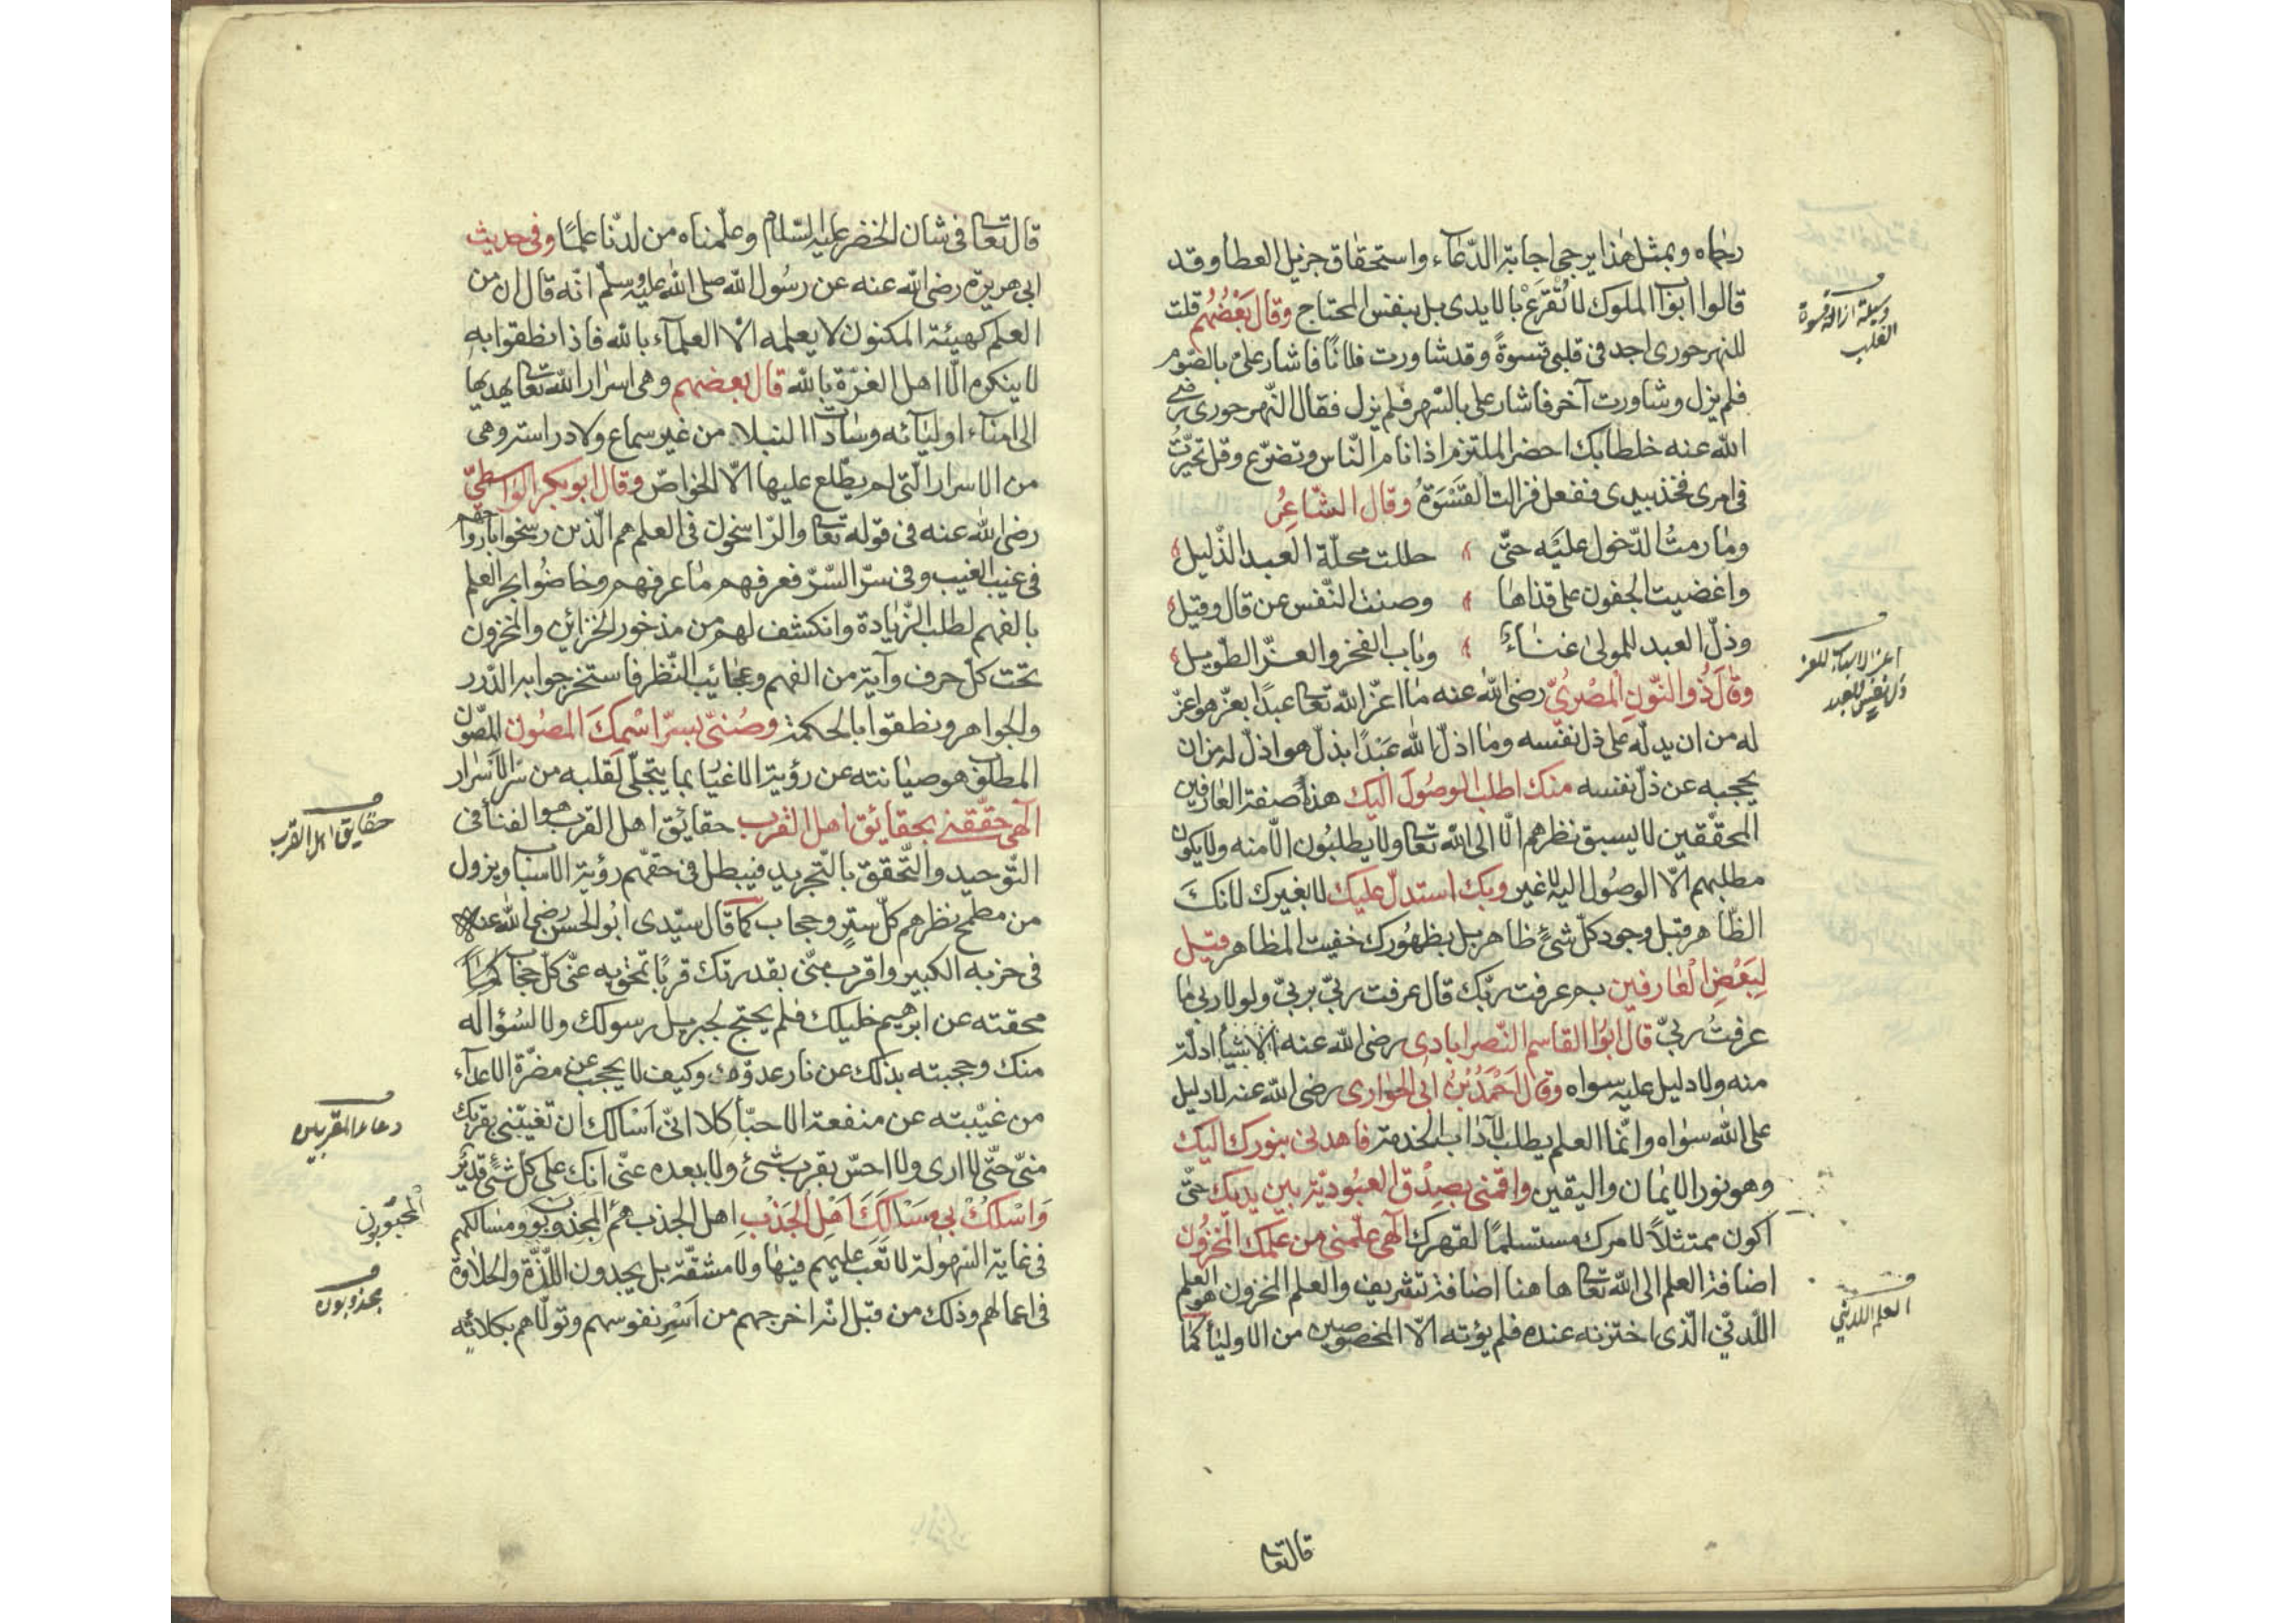 رجاه وبمثل هذا يرجى اجابة الدّعاء واستحقاق جزيل العطا وقد
قالوا ابوٓا الملوك لا تُقرَعْ بالايدى بل بنفس المحتاج وقال بَعْضُهُم قلت
للنهرجورى اجد فى قلبى قسوةً وقد شاورت فلانًا فاشار علىّ بالصّوم
فلم يزل وشاورت آخر فاشار على بالسّهر فلم يزل فقال النّهرجورى رضى
الله عنه خلطا بك احضر الملتزم اذا نام النّاس وتضرّع وقل تحيّرتُ
فى امرى فخذ بيدى ففعل فزالت القسْوَةُ وقال الشّاعِرُ
وما رمتُ الدّخول عليْه حتّى حللت محلّة العبد الذّليل
واغضيت الجفون على قذاها وصنت النّفس عن قال وقيل
وذلّ العبد للمولى غناءٌ وباب الفخر والعزّ الطّويل
وقالَ ذُو النّونِ المصْرىّ رضى الله عنه ما اعزّ الله تعا عبدًا بعزّ هو اعزّ
له من ان يدلّه على ذلّ نفسه وما اذلّ الله عَبْدًا بذلّ هو اذلّ له من ان
يحجبه عن ذلّ نفسه منك اطلب الوصُول اليك هذه صفة العارفين
المحقّقين لا يسبق نظرهم الّا الى الله تعا ولا يطلبُون الّا منه ولا يكون
مطلبهم الّا الوصُول اليه لا غير وبك استدلّ عليك لا بغيرك لانكَ
الظّاهر قبل وجود كلّ شئ ظاهر بل بظهُورك خفيت المظاهر قيل
لِبَعْضِ الْعَارفين بم عرفت ربّك قال عرفت ربّى بربّى ولولا ربى ما
عرفتُ ربىّ قال ابُوا القاسم النّصرابادى رضى الله عنه الاشيأ ادلّة
منه ولا دليل عليه سواه وقال اَحْمَدُ بْنُ ابى الحوارى رضى الله عنه لا دليل
على الله سواه وانّما العلم يطلب لآداب الخدمة فاهدنى بنورك اليك
وهو نور الايمان واليقين واقمنى بصِدْق العبُوديّة بين يديك حتّى
اكون ممتثلاً لامرك مستسلمًا لقهرك الٓهى علّمنى من علمك المخزُون
اضافة العلم الى الله تعا هاهنا اضافة تشريف والعلم المخزون هو العلم
اللّدنّى الّذى اختزنه عنده فلم يؤته الاّ المخصوصين من الاوليأ كما
قال تعا
وسيلة ازالة قسوة
القلب
اعز الاشياء للعز
ذل نفس العبد
العلم اللدنّي
قال تعا فى شان الخضر عليه السّلام وعلّمناه من لدنّا علمًا وفى حديث
ابى هريرة رضى الله عنه عن رسُول الله صلى الله عليه وسلّم انّه قال ان من
العلم كهيئة المكنون لا يعلمه الّا العلمآء بالله فاذا نطقوا به
لا ينكره الّا اهل الغرّة بالله قال بعضهم وهى اسرار الله تعا يهديها
الى امناء اوليآئه وسادات النبلاء من غير سماع ولا دراسة وهى
من الاسرار الّتى لم يطّلع عليها الاّ الخواصّ وقال ابو بكر الواسطىّ
رضى الله عنه فى قوله تعا والرّاسخون فى العلم هم الّذين رسخوا بارواحهم
فى غيب الغيب وفى سرّ السّرّ فعرفهم ما عرفهم وخاضُوا بحر العلم
بالفهم لطلب الزّيادة وانكشف لهم من مذخور الخزائن والمخزون
تحت كلّ حرف وآية من الفهم وعجايب النّظر فاستخرجوا به الدّرر
والجواهر ونطقوا بالحكمة وصُنّى بسرّ اسْمكَ المصُون الصّون
المطلق هو صيانته عن رؤية الاغيار بما يتجلّى لقلبه من سرّ الاسْرار
الٓهى حقّقنى بحقائق اهل القرب حقائق اهل القرب هو الفنأ فى
التّوحيد والتّحقّق بالتّجريد فيبطل فى حقهّم رؤية الاسباب ويزول
من مطمح نظرهم كلّ ستر وحجاب كما قال سيّدى ابُو الحسن رضى الله عنه
فى حزبه الكبير واقرب منّى بقدرتك قربًا تمحق به عنّى كلّ حجاب
محقته عن ابرهيم خليلك فلم يحتج لجبريل رسولك ولا لسُؤاله
منك وحجبته بذلك عن نار عدوّك وكيف لا يحجب عن مضرّة الاعدآء
من غيّبته عن منفعة الاحبّأ كلا انّى اَسْالك ان تغيّبنى بقربك
منّى حتّى لا ارى ولا احسّ بقرب شئ ولا ببعده عنّى انّك على كلّ شئ قدير
وَاسْلكْ بى مَسَالكَ اَهْلِ الجَذبِ اهل الجذب هم المجذوبون ومسالكهم
فى غاية السّهولة لا تعب عليهم فيها ولا مشقّة بل يجدون اللّذّة والحلاوة
فى اعمالهم وذلك من قبل انّه اخرجهم من اَسْرِ نفوسهم وتولّاهم بكلائه
حقايق اهل القرب
دعاء المقربين
المحبّوبون
مجذوبون